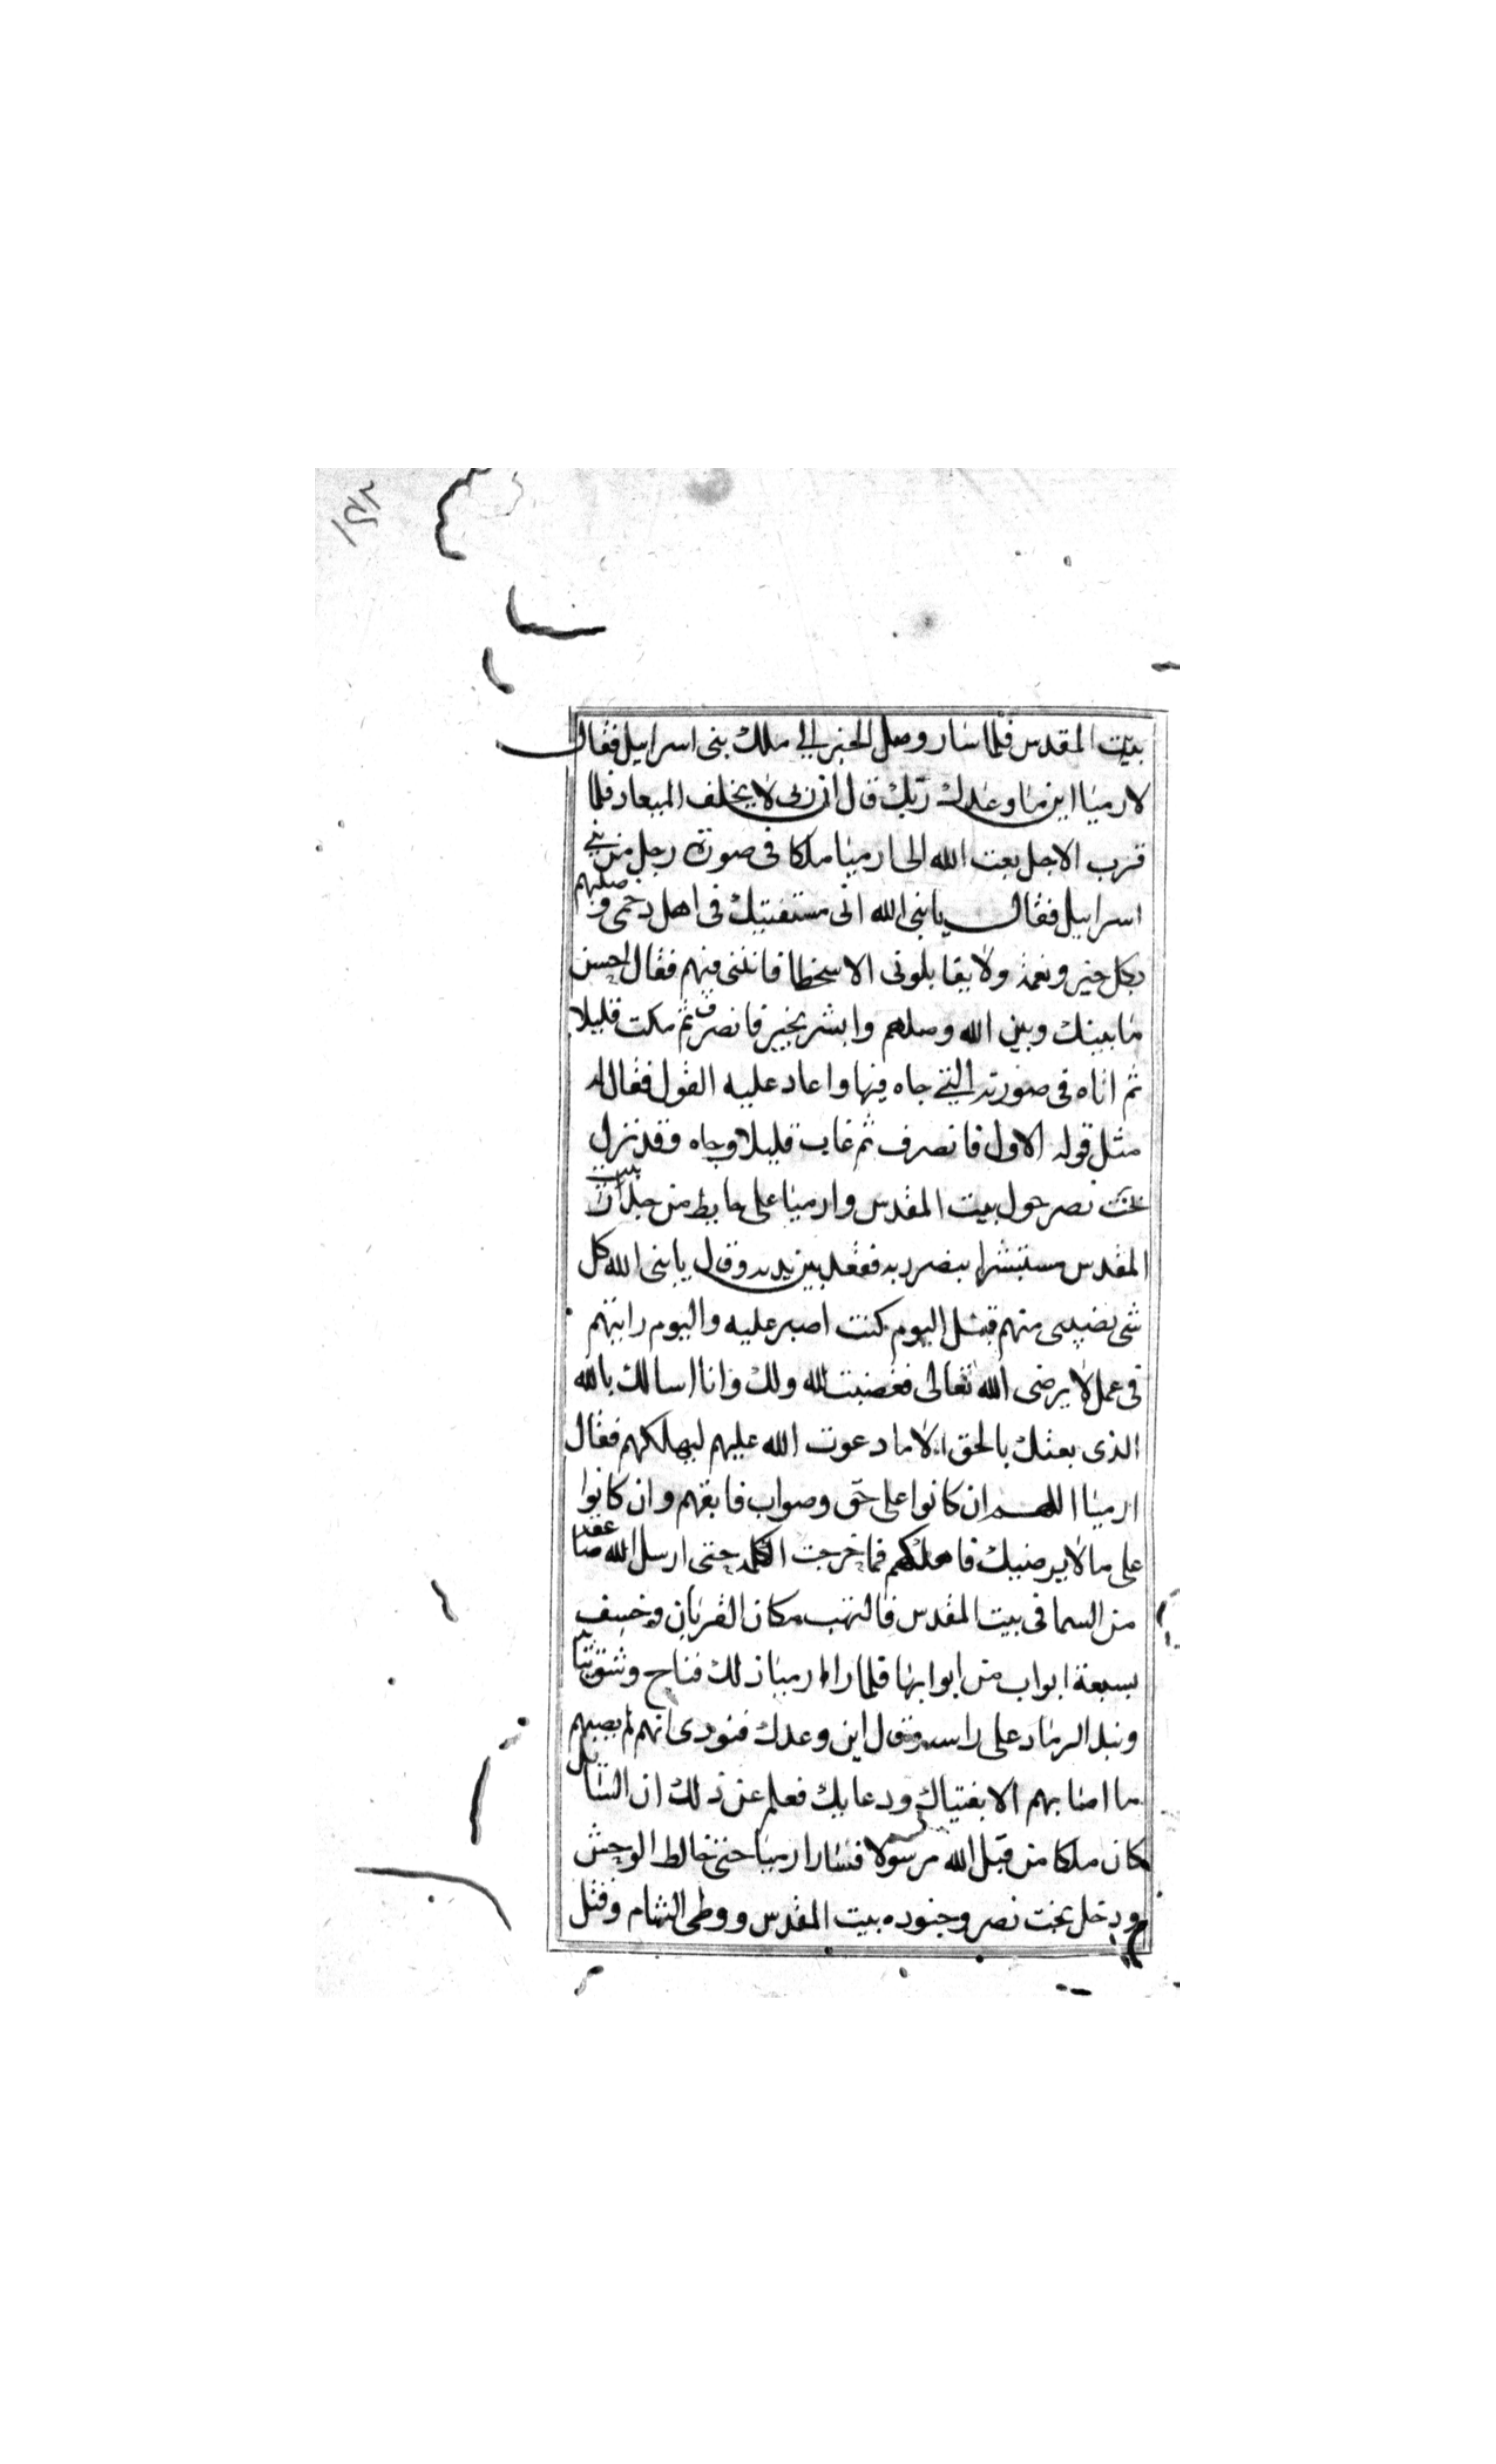 بيت المقدس فلما سار وصل الخبر الي ملك بنى اسرابيل فقال
لارميا اين ما وعدك ربك قال ان ربى لا يخلف الميعاد فلما
قرب الاجل بعت الله الى ارميا ملكا فى صورة رجل من بني
اسرابيل فقال يا بنى الله انى مستفتيك فى اهل رحمى وصلتهم
بكل خير ونعمة ولا يقابلونى الا سخطا فافتنى فيهم فقال احسن
ما بينك وبين الله وصلهم وابشر بخير فانصرف ثم مكت قليلا
ثم اتاه فى صورته التي جاه فيها واعاد عليه القول فقال له
مثل قوله الاول فانصرف ثم غاب قليلا وجاه وقد نزل
بخت نصر حول بيت المقدس وارميا على حايط من جدران بيت
المقدس مستبشرا بنصر ربه فقعد بين يديه وقال يا بنى الله كل
شى يصيبنى منهم قبل اليوم كنت اصبر عليه واليوم رايتهم
فى عمل لا يرضى الله تعالى فغضبت لله ولك وانا اسالك بالله
الذى بعثك بالحق الا ما دعوت الله عليهم ليهلكهم فقال
ارميا اللهم ان كانوا على حق وصواب فابقهم وان كانوا
على ما لا يرضيك فاهلكهم فما خرجت الكلمة حتى ارسل الله صاعقة
من السما فى بيت المقدس فالتهب مكان القربان وخسف
بسبعة ابواب من ابوابها فلما را ارميا ذلك فناح وشق ثيابه
ونبد الرماد على راسه وقال اين وعدك فنودى انهم لم يصيبهم
ما اصابهم الا بفتياك ودعايك فعلم عن ذلك ان السايل
كان ملكا من قبل الله مرسولا فسار ارميا حتى خالط الوحش
ودخل بخت نصر وجنوده بيت المقدس ووطى الشام وقتل